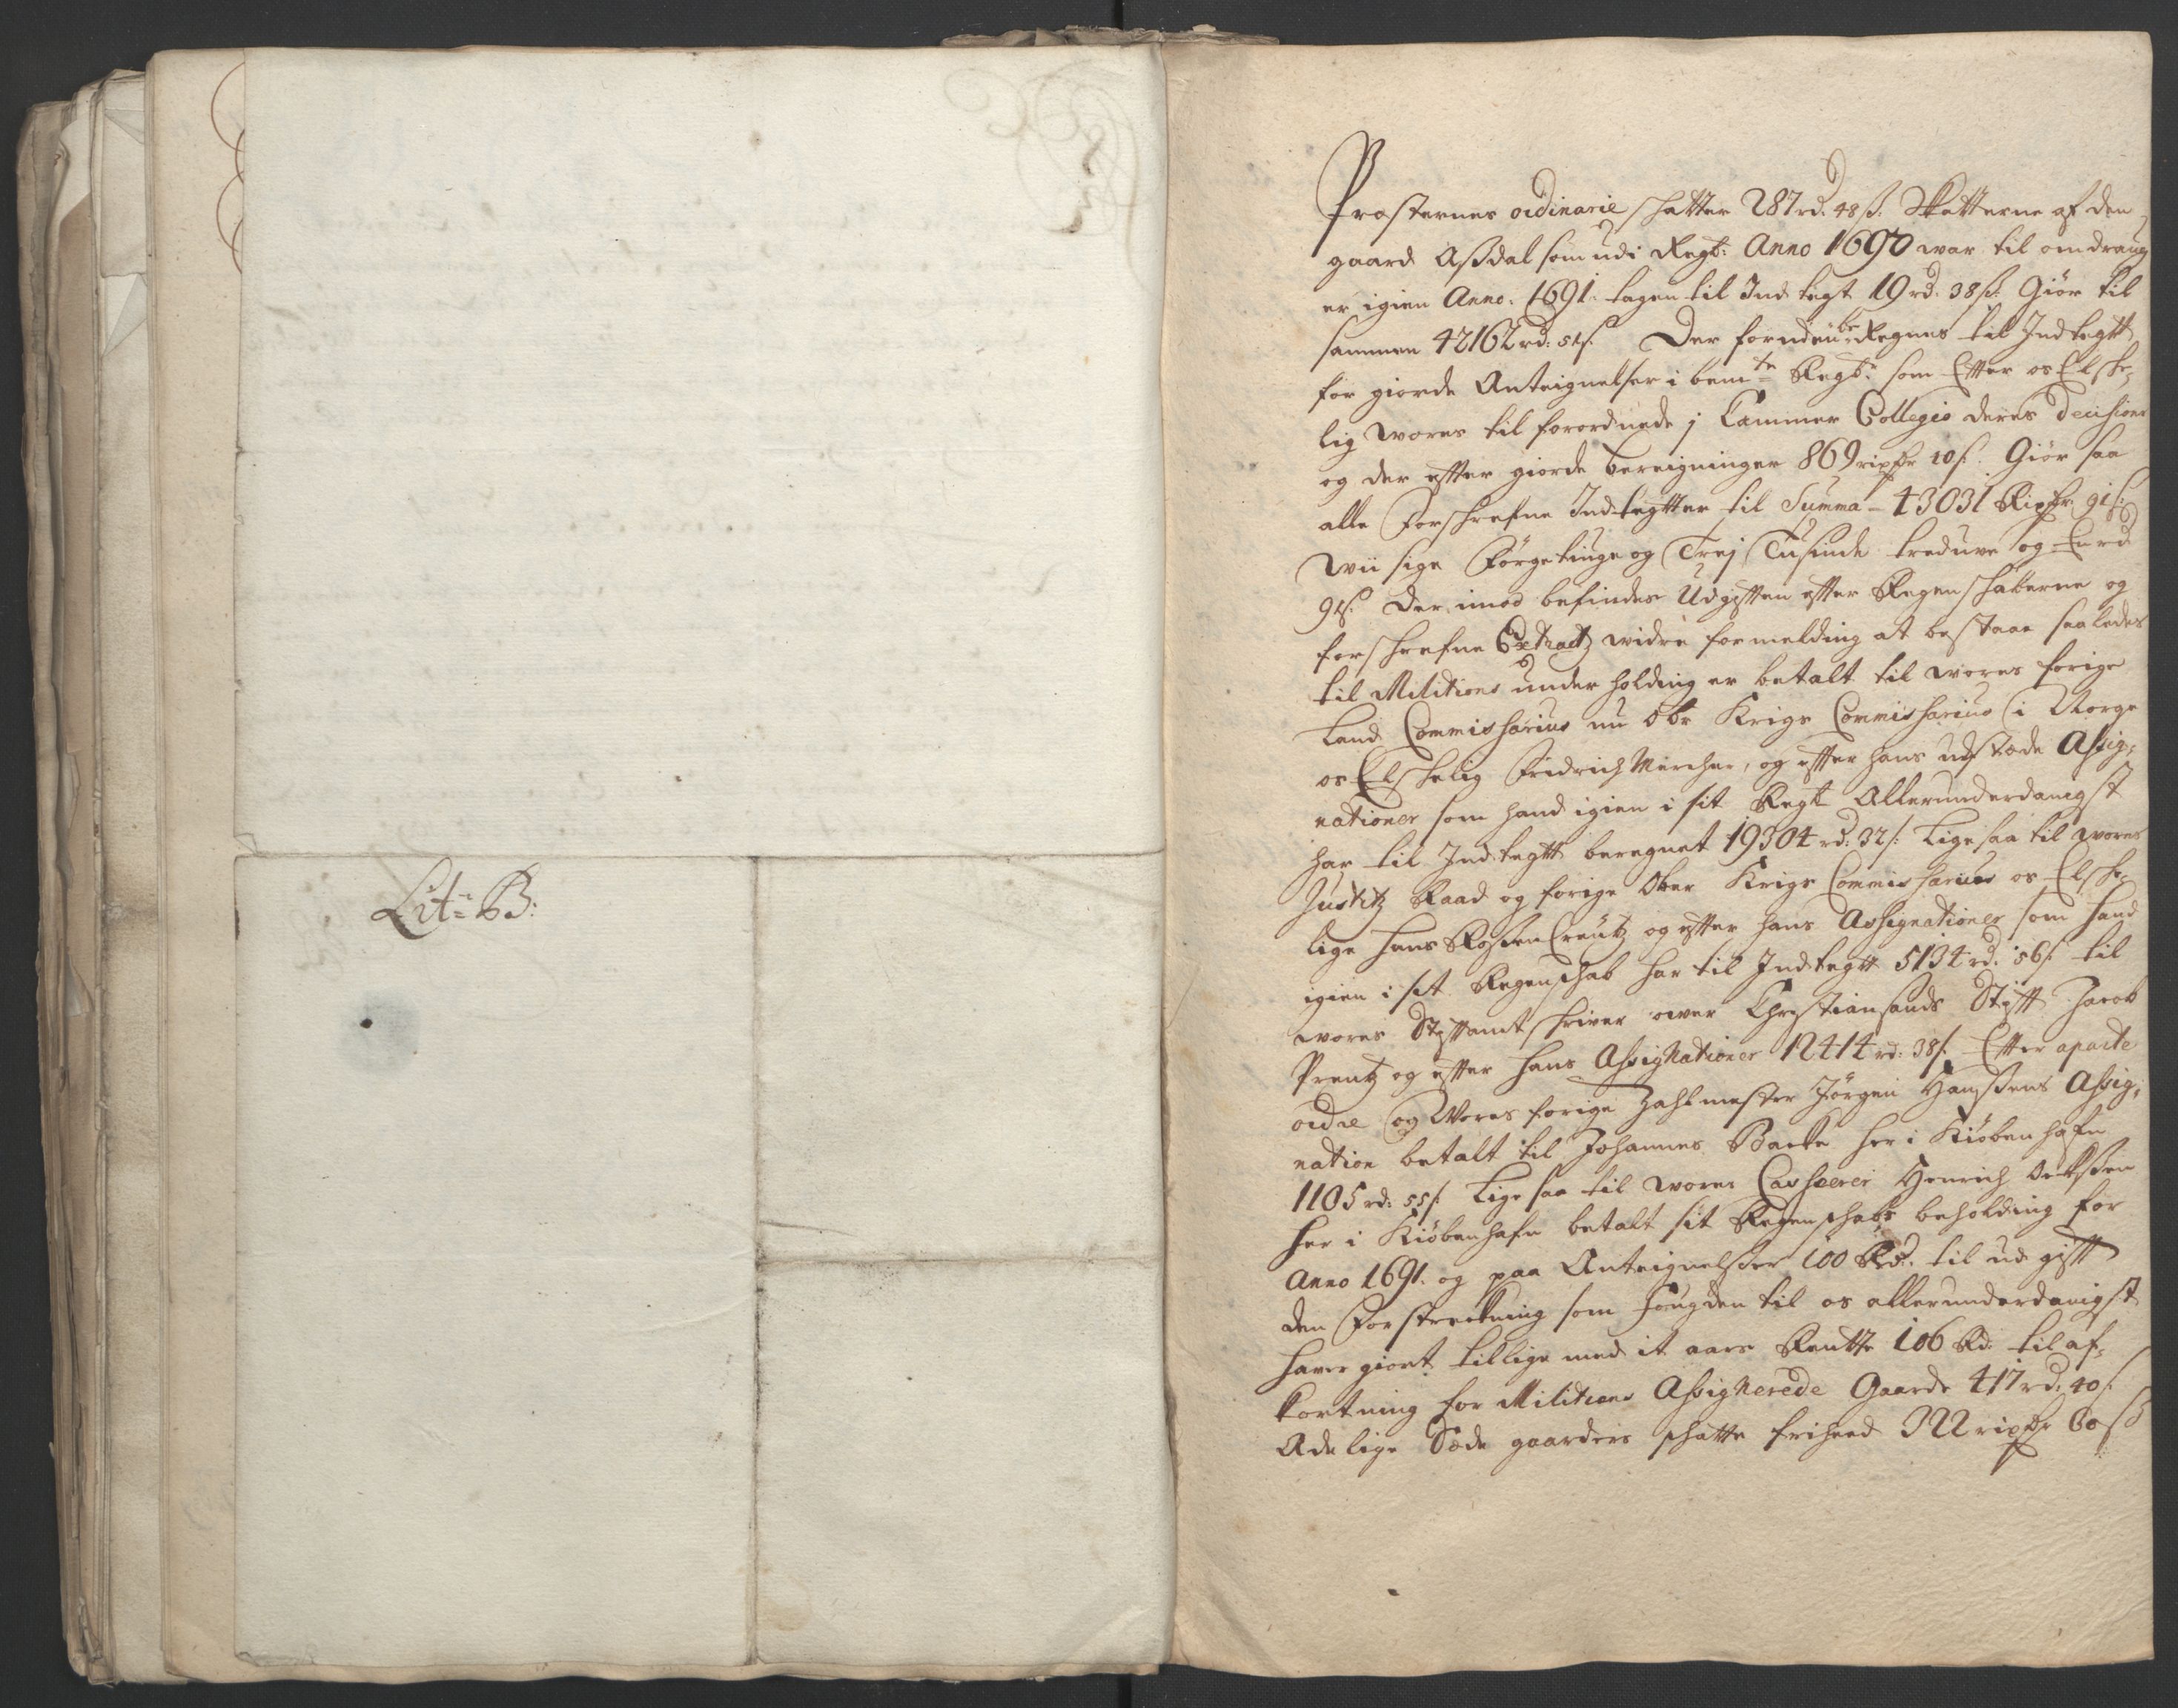 Lit: B:
Præsternes ordinarie schatter 287 rd. 48 s: Skatterne af den
gaard Assdal som udi Regb: Anno 1690 war til omdraug
er igien Anno: 1691. tagen til Indtegt 19 rd. 38 s: Giør til
sammen 42162 rd: 51 s. Der foruden Regnes til Indtegtt
for giorde Anteignelser i bemte Regb: som Efter os Elske¬
lig wores til forordnede j Cammer Collegio deres decisioner
og der efter giorde bereigninger 869 rixdr 10 s. Giør saa
alle Forschrefne Indtegtter til Summa - 43031 Rixdr 91 s:
wii sige Førgetiuge og Trej Tusinde treduve og En rd
91 s. Der imod befindes Udgiften efter Regenschaberne og
forschrefne Extract widre formelding at bestaae saaledes
til Militiens underholding er betalt til wores forige
Land Commissarius nu Obr Krigs Commissarius i Norge
os Elschelig Fridrich Mercher, og efter hans udstæde Assig¬
nationer som hand igien i sit Regb Allerunderdanigst
har til Indtegtt beregnet 19304 rd: 32 s: Ligesaa til wores
Justitz Raad og forige Ober Krigs Commissarius os Elske¬
lige Hans RosenCreutz og efter hans Assignationer som hand
igien i sit Regenschab har til Indtegtt 5134 rd. 56 s. til
wores Stiftamtschriver over Christiansands Stift Jacob
Prentz og efter hans Assignationer 12414 rd: 38 s. Efter aparte
ordre og Wores forige Zahlmester Jørgen Hanssens Assig¬
nation betalt til Johannes Barte her i Kiøbenhafn
1105 rd: 55 s. Ligesaa til wores Casserer Henrich
her i Kiøbenhafn betalt sit Regenschabs beholding for
Anno 1691. og paa Anteignelser 100 Rd. til udgift
den Forstrechning som fougden til os allerunderdanigst
haver giort tillige med it aars Rentte 106 Rd. til af¬
kortning for Militiens Assignerede Gaarde 417 rd. 40 s.
Adelige Sæde gaarders schatte friheed 322 rixdr 60 s